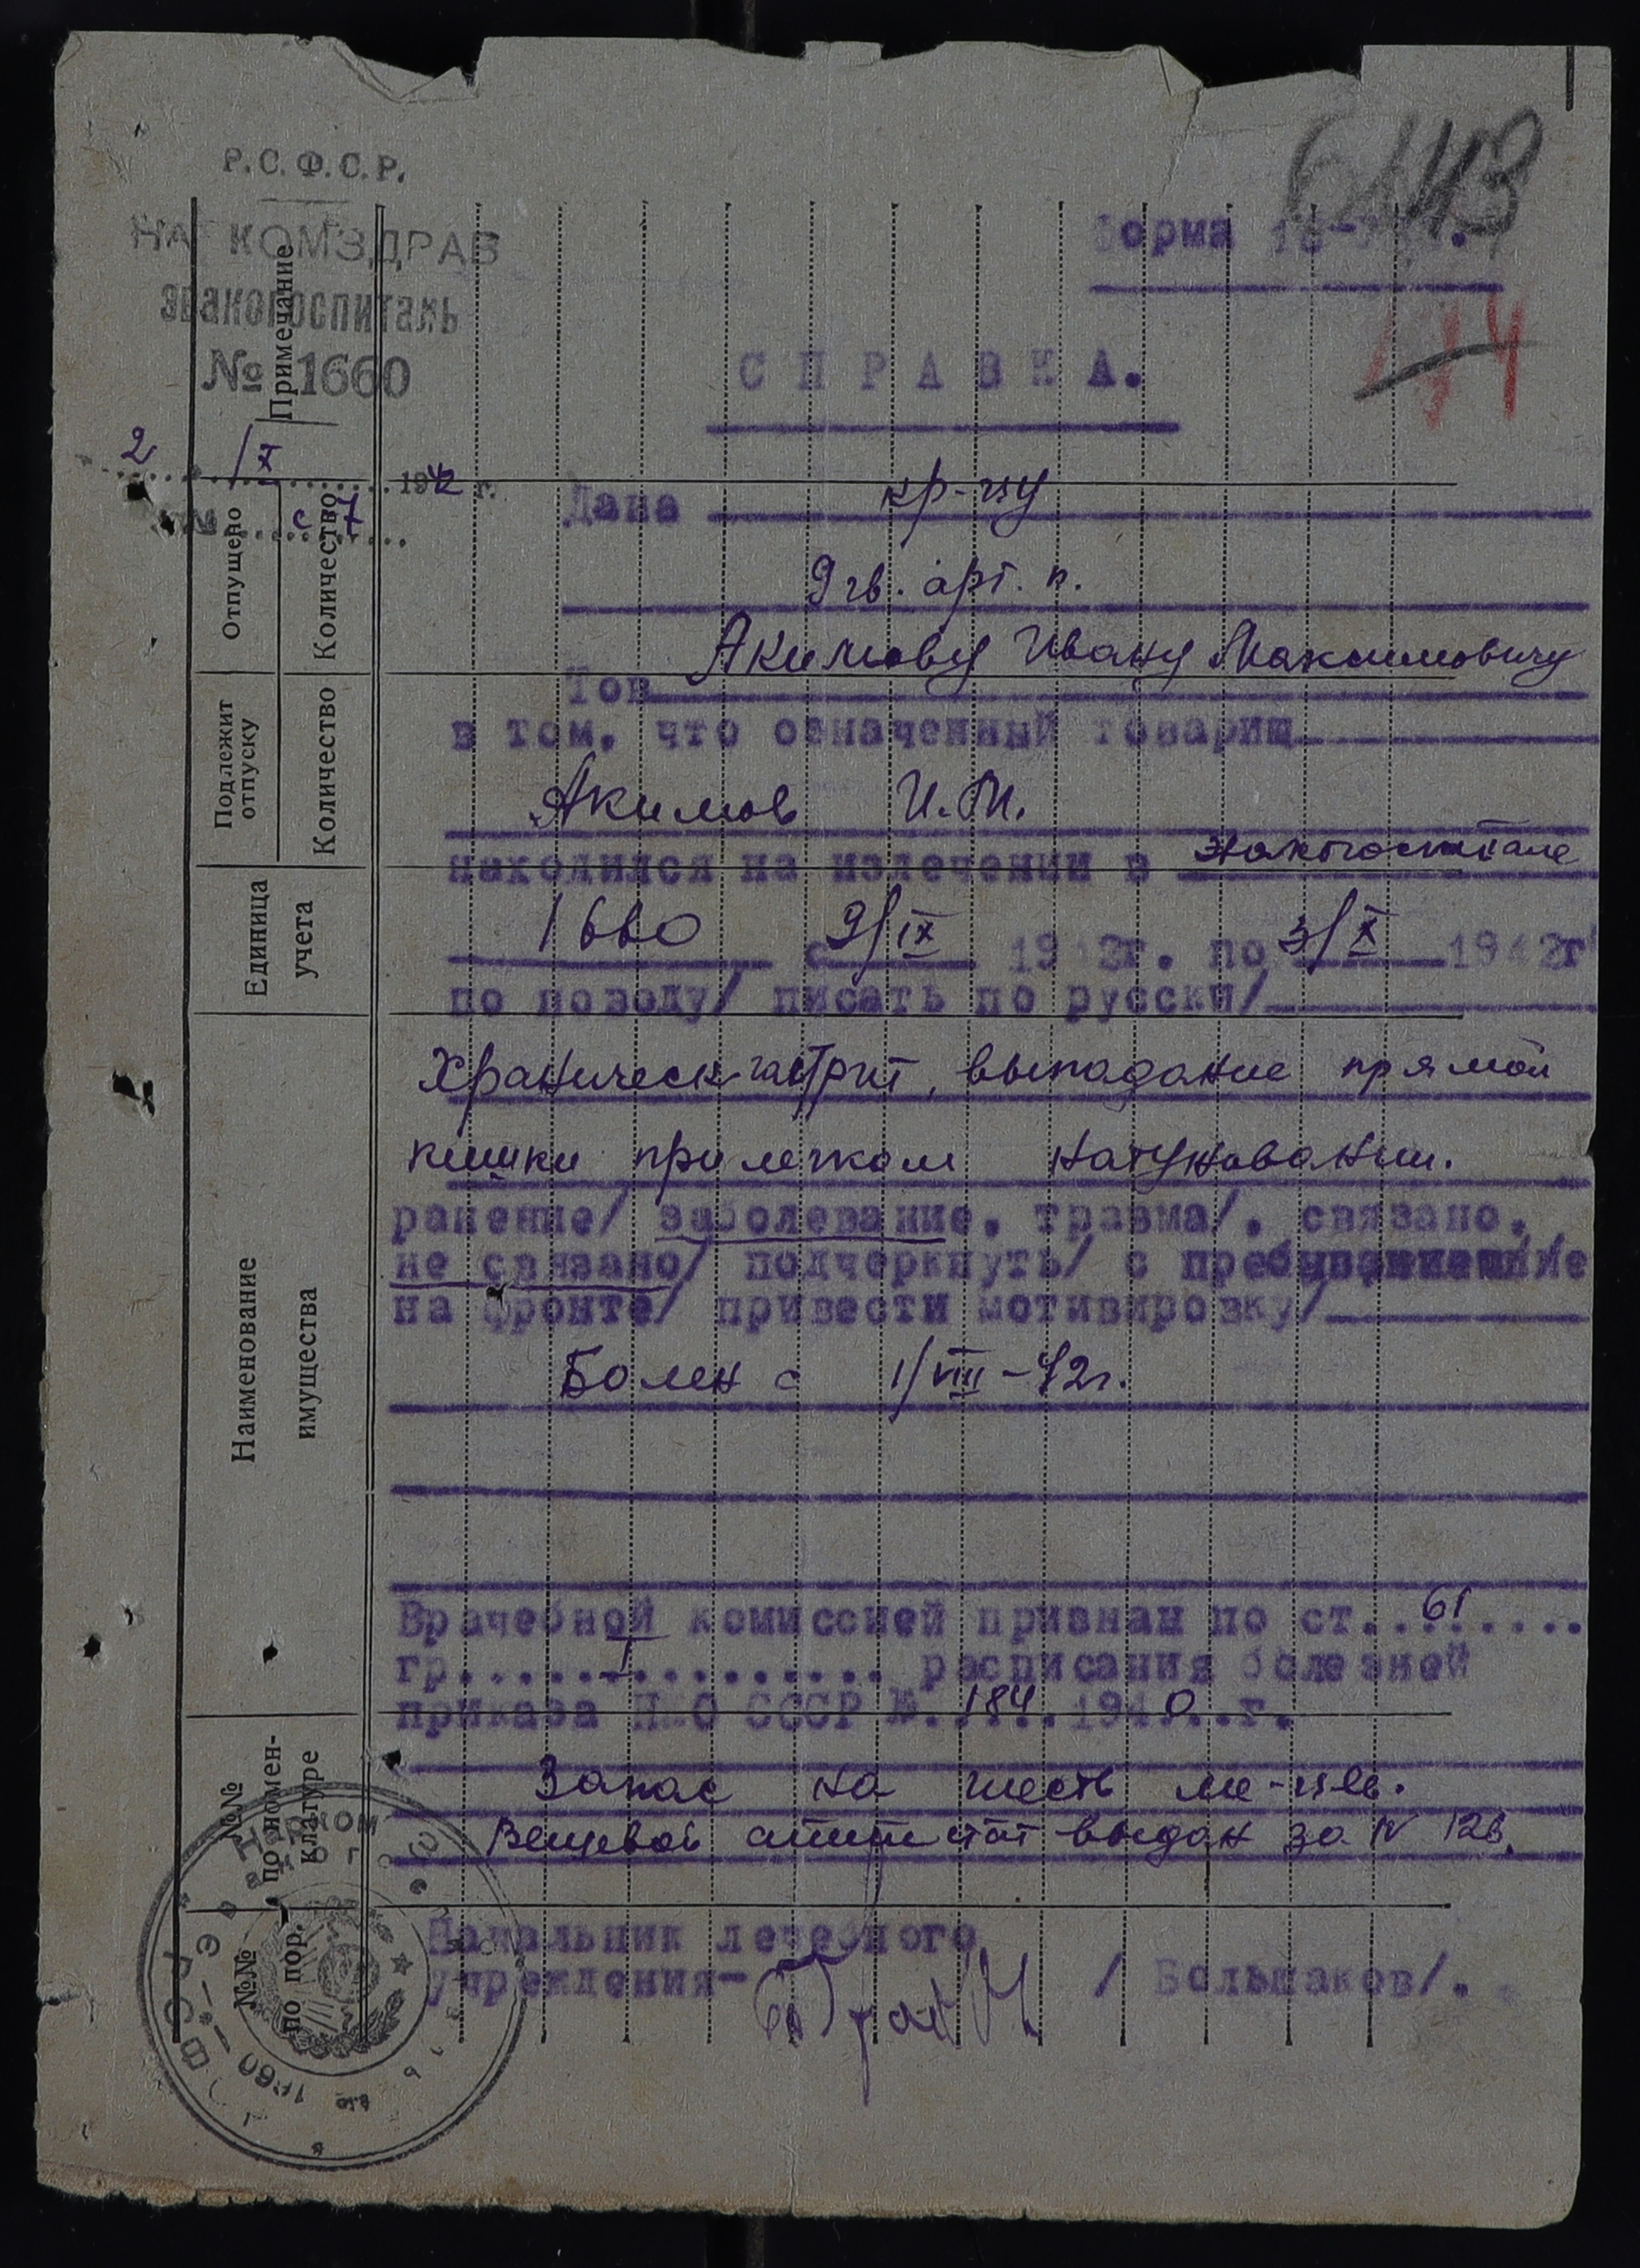 Р.С.Ф.С.Р.
НАРКОМЗДРАВ
Эвакогоспиталь
№ 1660
2/X 1942 г.
№ с-7
6443
Форма 16
144
СПРАВКА.
Дана кр-цу
9 гв. арт. п.
Тов. Акимову Ивану Максимовичу
в том, что означенный товарищ
Акимов И.М.
находился на излечении в Эвакогоспитале
1660 с 9/IX 1942г. по 3/X 1942г
по поводу/ писать по русски/
Храническ гастрит, выпадание прямой
кишки при легком натуживании.
ранение/ заболевание, травма/, связано,
не связано/ подчеркнуть/ с пребыванием
на фронте/ привести мотивировку/
Болен с 1/VIII-42г.
Врачебной комиссией признан по ст. 61
гр. I расписания болезней
приказа НКО СССР №.184.1940.г.
Запас на шесть ме-цев.
Вещевой аттестат выдан за N 126.
Начальник лечебного
учреждения- / Большаков/.
Примечание
Отпущено
Количество
Подлежит отпуску
Количество
Единица учета
Наименование имущества
№№ по номен-клатуре
№№ по пор.
НАРКОМ
1660